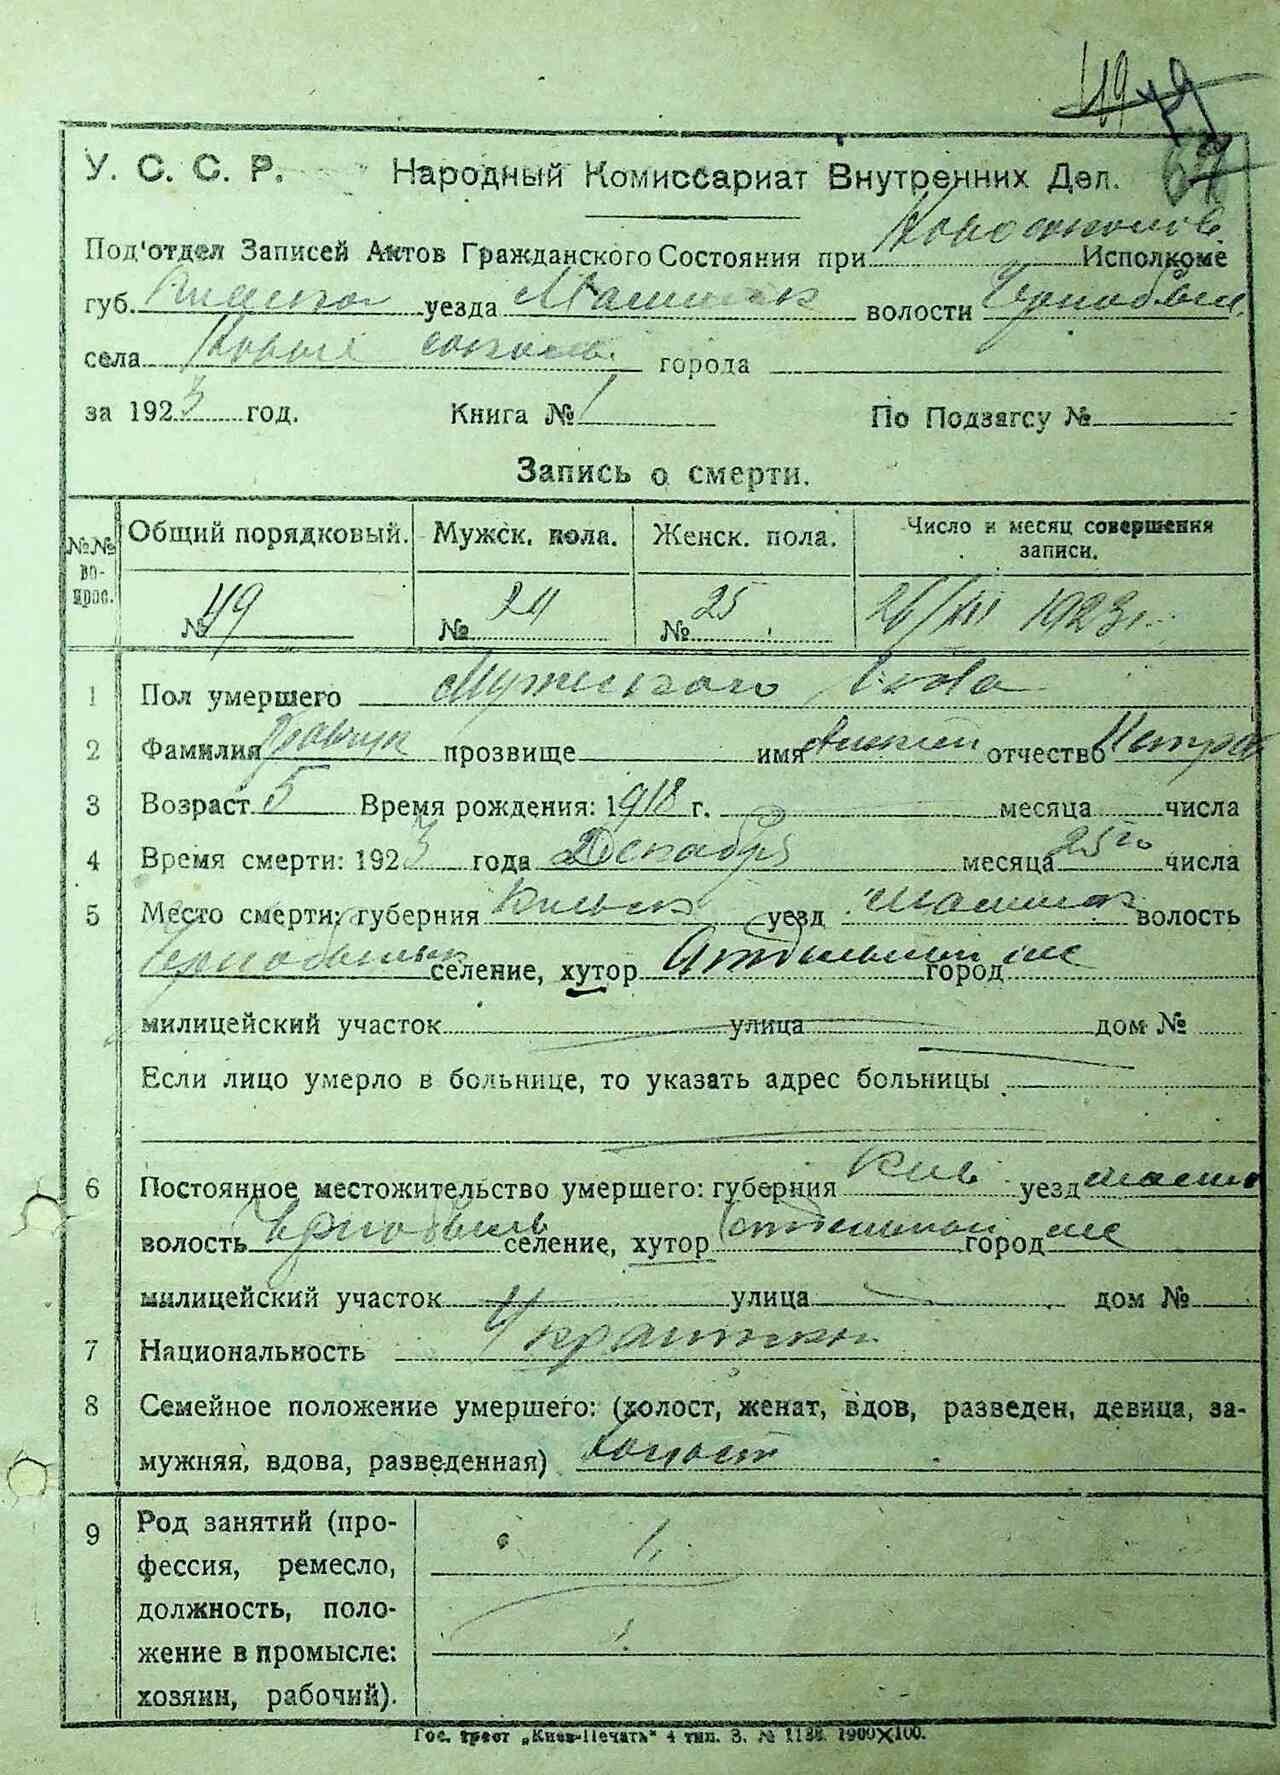 119 49
67
У. С. С. Р. Народный Комиссариат Внутренних Дел.
Под'отдел Записей Актов Гражданского Состояния при Исполкоме
губ. уезда волости
села Новые города
за 1923 год. Книга № 1 По Подзагсу №
Запись о смерти.
№№ во- прос. Общий порядковый. Мужск. пола. Женск. пола. Число и месяц совершения записи.
№ 49 № 24 № 25 26/XII 1923 г.
1 Пол умершего Мужского пола
2 Фамилия Кравчук прозвище имя отчество Петров
3 Возраст 5 Время рождения: 1918 г. месяца числа
4 Время смерти: 1923 года Декабря месяца 25го числа
5 Место смерти: губерния Киевск уезд волость
селение, хутор город
милицейский участок улица дом №
Если лицо умерло в больнице, то указать адрес больницы
6 Постоянное местожительство умершего: губерния Киев уезд
волость селение, хутор город
милицейский участок улица дом №
7 Национальность
8 Семейное положение умершего: (холост, женат, вдов, разведен, девица, за-
мужняя, вдова, разведенная) холост
9 Род занятий (про-
фессия, ремесло,
должность, поло-
жение в промысле:
хозяин, рабочий).
Гос. трест „Киев-Печать" 4 тип. З. № 1138. 1900X100.